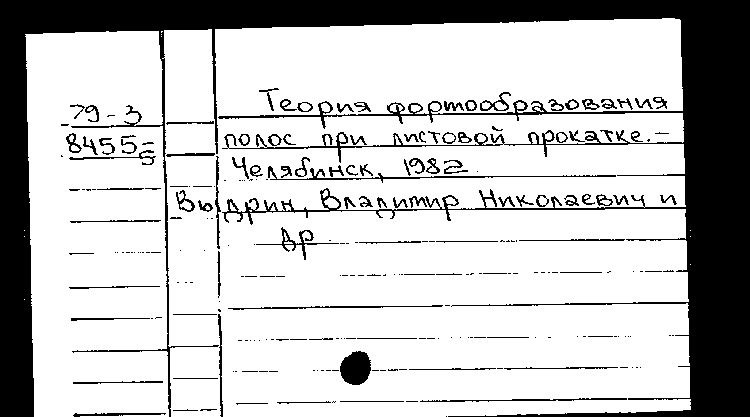 79-3
8455-
5
Теория формообразования
полос при листовой прокатке.-
Челябинск, 1982
Выдрин, Владимир Николаевич и
др